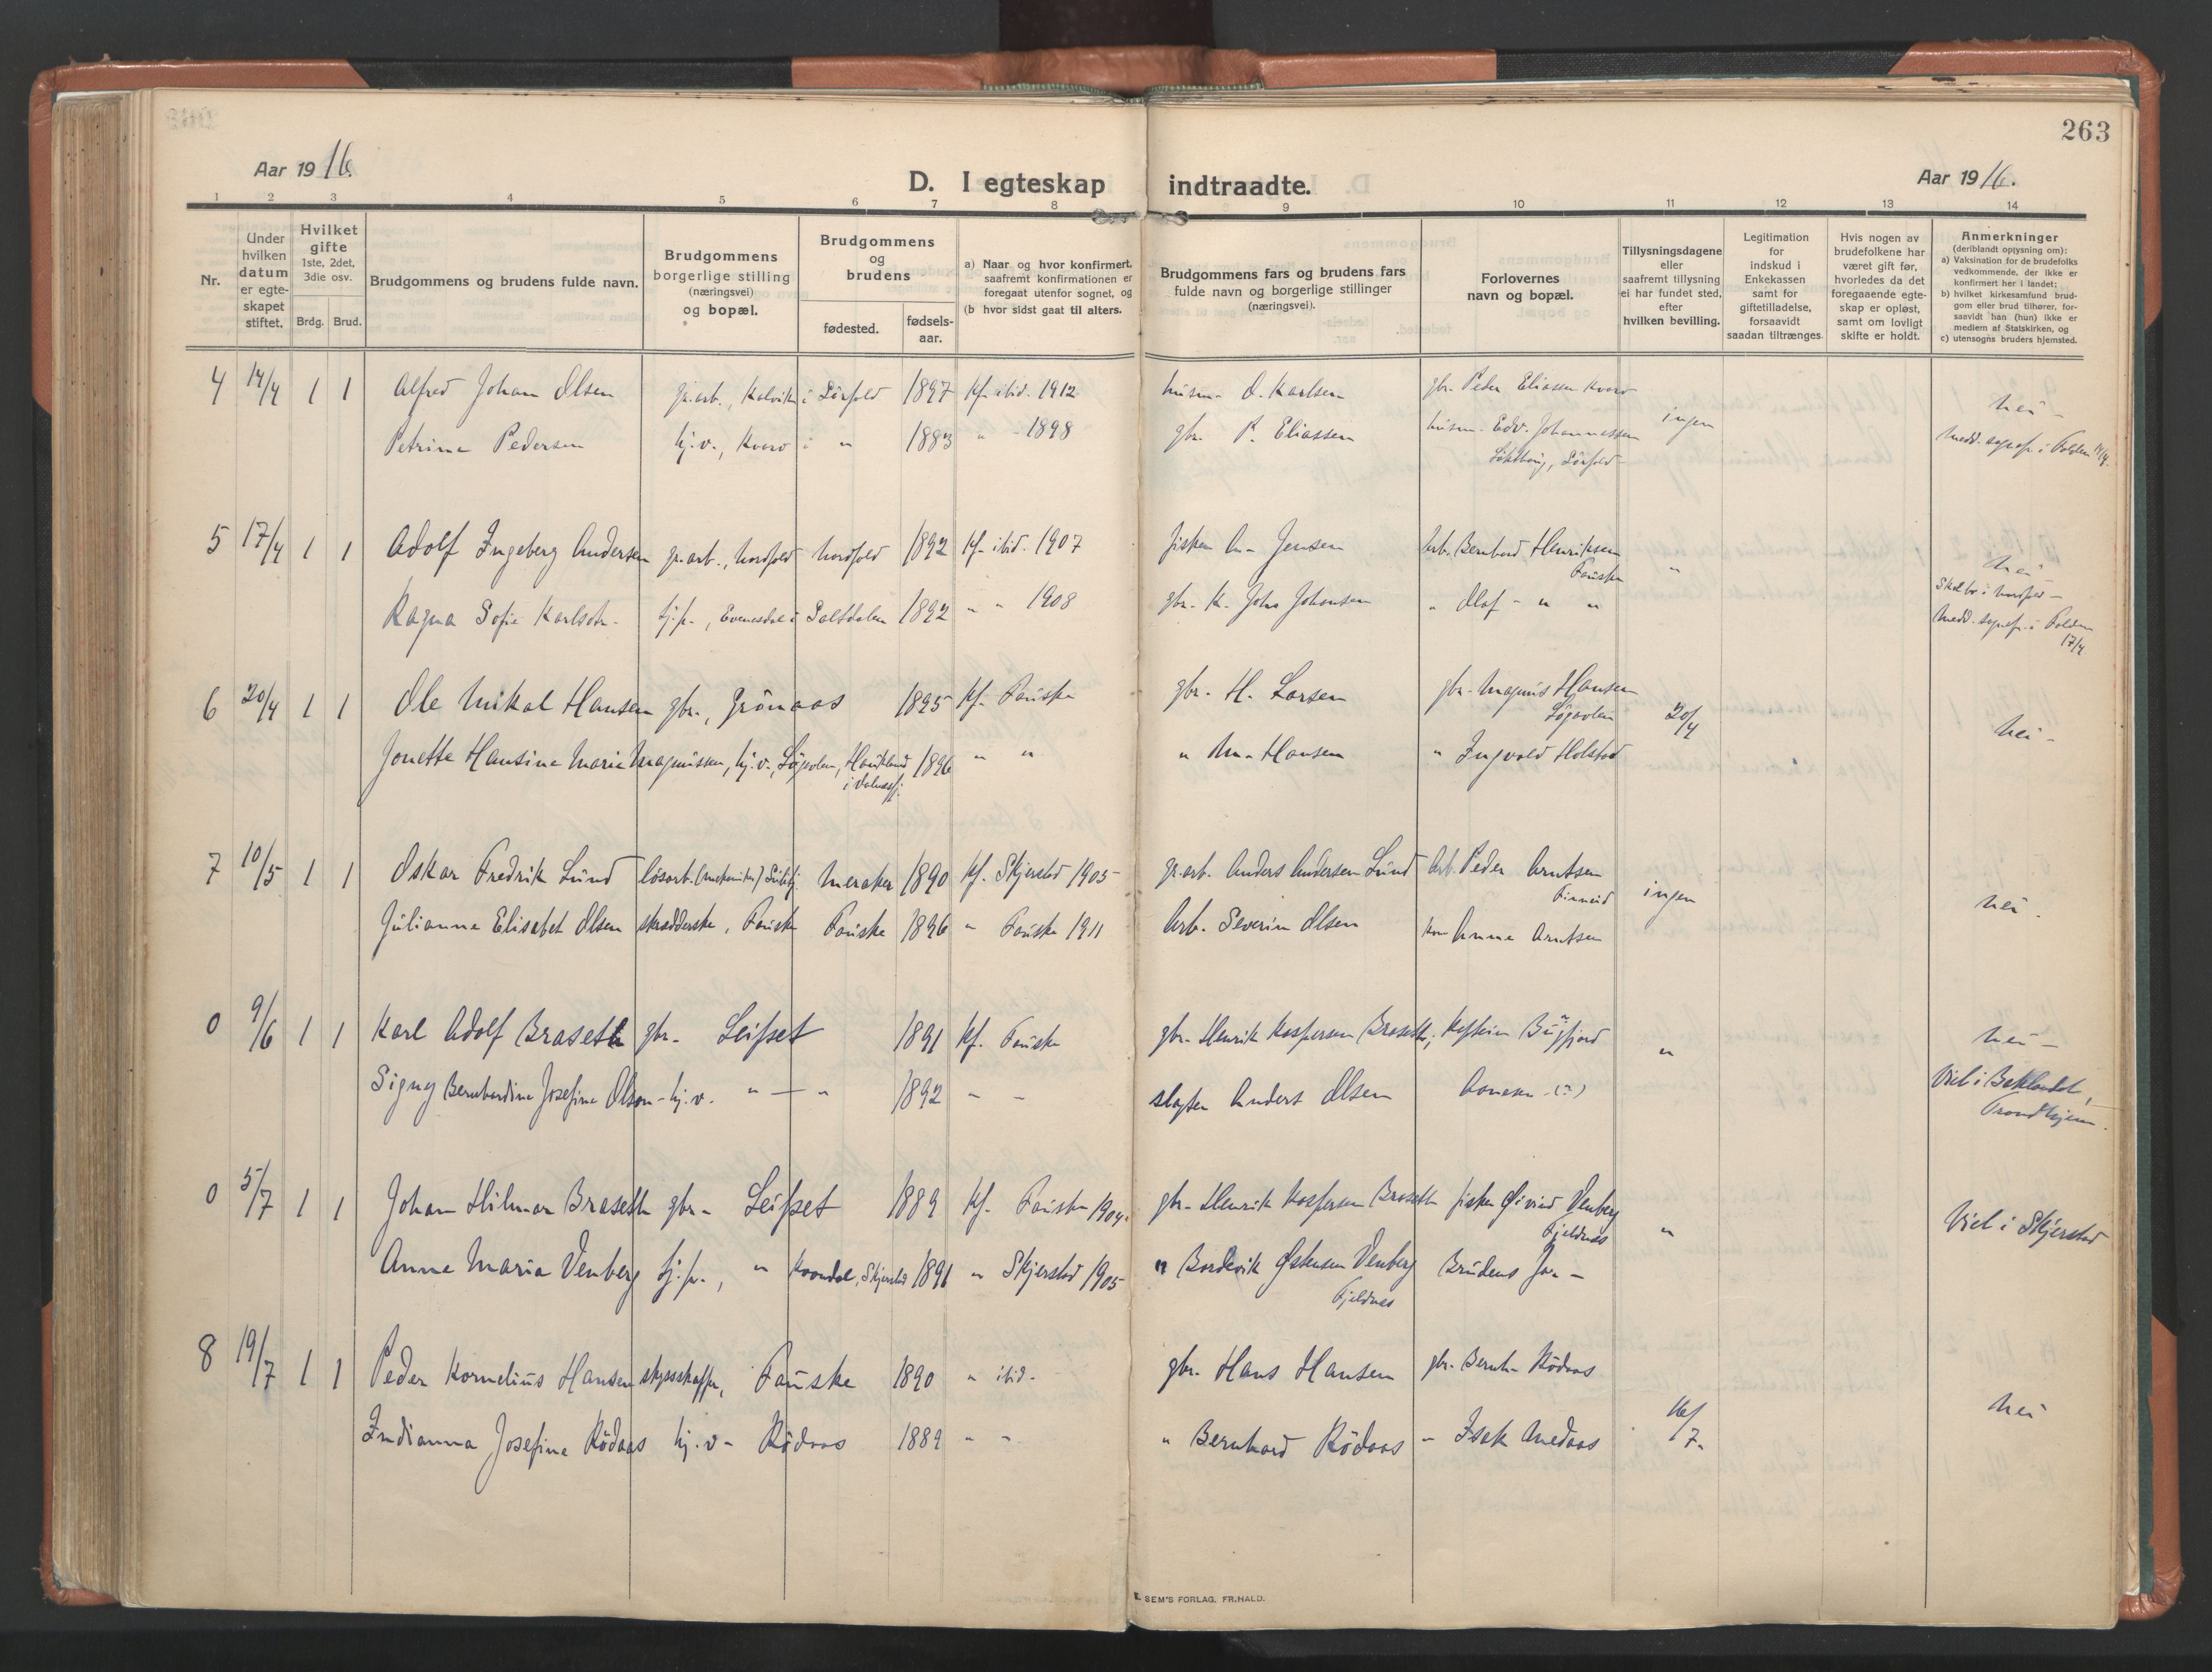 263
Aar 1916.
D. I egteskap indtraadte.
Aar 1916.
1 2 3 4 5 6 7 8 9 10 11 12 13 14
Nr.
Under hvilken datum er egte-skapet stiftet.
Hvilket gifte 1ste, 2det, 3die osv.
Brdg. Brud.
Brudgommens og brudens fulde navn.
Brudgommens borgerlige stilling (næringsvei) og bopæl.
Brudgommens og brudens
fødested.
fødsels-aar.
a) Naar og hvor konfirmert, saafremt konfirmationen er foregaat utenfor sognet, og
(b hvor sidst gaat til alters.
Brudgommens fars og brudens fars fulde navn og borgerlige stillinger (næringsvei).
Forlovernes navn og bopæl.
Tillysningsdagene eller saafremt tillysning ei har fundet sted, efter hvilken bevilling.
Legitimation for indskud i Enkekassen samt for giftetilladelse, forsaavidt saadan tiltrænges.
Hvis nogen av brudefolkene har været gift før, hvorledes da det foregaaende egte-skap er opløst, samt om lovligt skifte er holdt.
Anmerkninger (deriblandt oplysning om):
a) Vaksination for de brudefolks vedkommende, der ikke er konfirmert her i landet;
b) hvilket kirkesamfund brud-gom eller brud tilhører, for-saavidt han (hun) ikke er medlem af Statskirken, og
c) utensogns bruders hjemsted.
4 14/4 1 1 Alfred Johan Olsen gr.arb., Kalvik i Sörfold 1897 kf. ibid. 1912 husm. O. Karlsen gbr. Peder Eliassen Kverv ingen nei -
Petrine Pedersen hj.v., Kverv i " 1883 " - 1898 gbr. P. Eliassen husm. Edv. Johannessen Medd. sognepr. i Folden 14/4.
Sörfold -
5 17/4 1 1 Adolf Ingeberg Andersen gr.arb., Nordfold Nordfold 1892 kf. ibid. 1907 fisker A. Jensen Arb. Bernhard Henriksen " nei
Fauske
Ragna Sofie Karlsdtr. tj.p., Evenesdal i Saltdalen 1892 " " 1908 gbr. K. Johs Johansen " Olaf - " "
Skal bo i Nordfold -
Medd. sognepr. i Folden
17/4.
6 20/4 1 1 Ole Mikal Hansen gbr., Grönaas 1895 kf. Fauske gbr. H. Larsen gbr. Magnus Hansen 20/4 nei -
Lögavlen
Jonette Hansine Marie Magnussen, hj.v., Lögavlen, Haukland 1896 " " " M. Hansen " Ingvald Holstad
i Valnesfj.
7 10/5 1 1 Oskar Fredrik Lund lösarb. (mekaniker) Sulitj. Meraker 1890 kf. Skjerstad 1905 gr.arb. Anders Andersen Lund Arb. Peder Arntsen ingen nei.
Finneid
Julianne Elisabet Olsen skrædderske, Fauske Fauske 1896 " Fauske 1911 Arb. Severin Olsen kone Anna Arntsen
0 9/6 1 1 Karl Adolf Braseth gbr. Leifset 1891 kf. Fauske gbr. Henrik Kaspersen Braseth; " nei -
Signy Bernhardine Josefine Olsen - hj.v. " — " 1892 " - slagter Anders Olsen Aanesen (?) Viet i Baklandet,
Trondhjem.
0 5/7 1 1 Johan Hilmar Braseth gbr. Leifset 1889 kf. Fauske 1904. gbr. Henrik Kaspersen Braseth fisker Øivind Venberg " Viet i Skjerstad
Fjeldnæs
Anna Maria Venberg tj.p., " Kvandal, Skjerstad 1891 " Skjerstad 1905 " Bordevik Østensen Venberg Brudens far -
Fjeldnæs
8 19/7 1 1 Peder Kornelius Hansen skyssskaffer, Fauske 1890 " ibid. gbr. Hans Hansen gbr. Bernh. Rödaas 16/7. nei
Indianna Josefine Rödaas hj.v. Rödaas 1889 " - " Bernhard Rödaas - Isak Medaas
E. SEM'S FORLAG. FR.HALD.